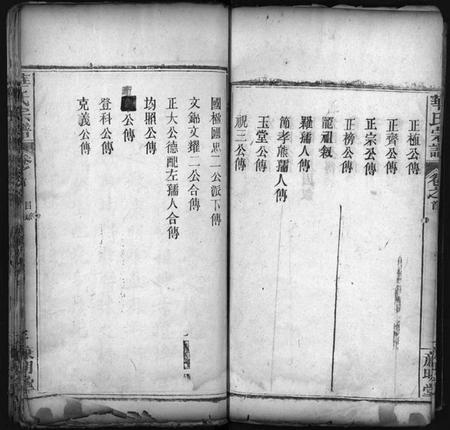 華氏宗譜
卷之首
正極公傳
正齊公傳
正宗公傳
正榜公傳
龍祖敘
羅孺人傳
節孝熊孺人傳
玉堂公傳
視三公傳
國極國忠二公派下傳
文錦文耀二公合傳
正大公德配左孺人合傳
均照公傳
公傳
登科公傳
克義公傳
華氏宗譜